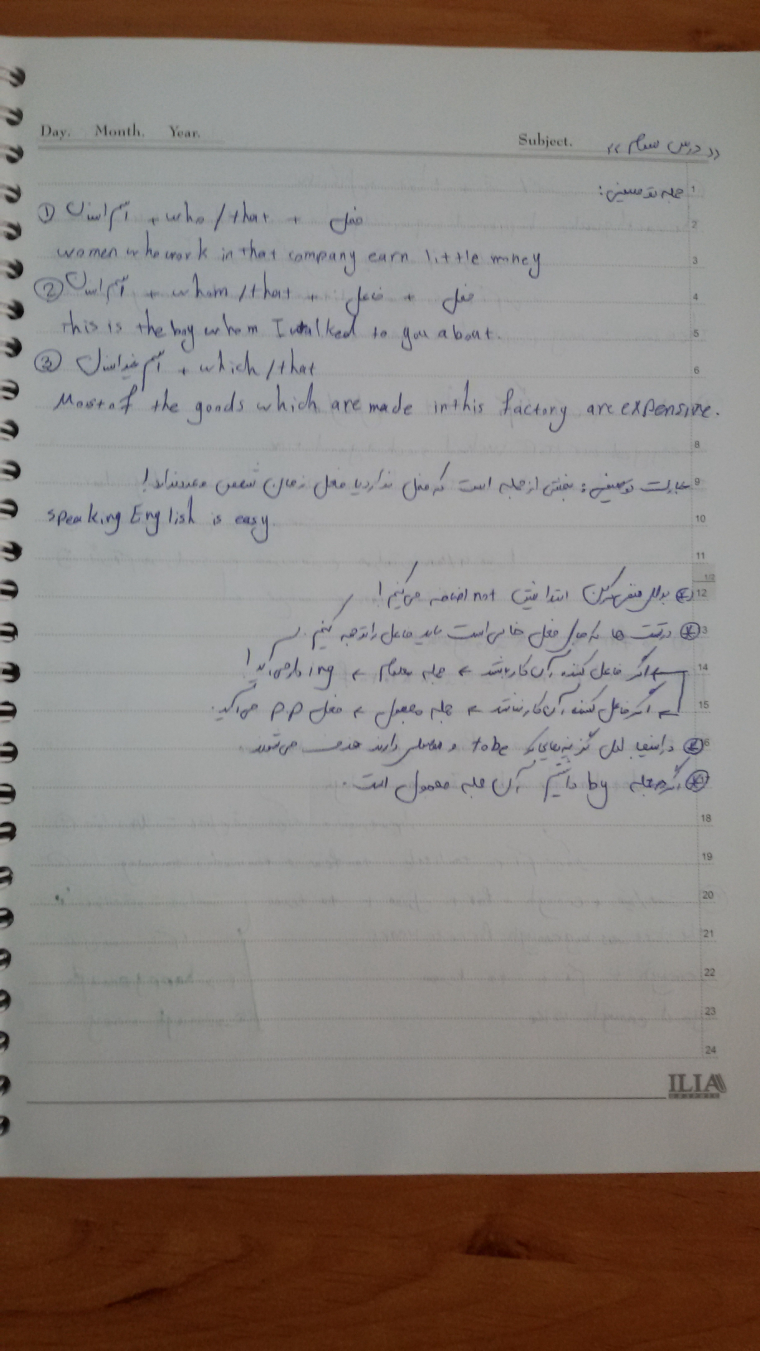 Day. Month. Year. Subject. «درس سوم»
جمله توصیفی:
① اسم انسان + who/that + فعل
women who work in that company earn little money
② اسم انسان + whom/that + فاعل + فعل
this is the boy whom I talked to you about.
③ اسم غیرانسان + which/that
Most of the goods which are made in this factory are expensive.
عبارت توصیفی: بخشی از جمله است که فعل ندارد یا فعل زمان شخص نمیدهد!
speaking English is easy
برای منفی کردن ابتدا not اضافه می‌کنیم!
در تست ها که جای فعل خالی است باید فاعل را توجه کنیم.
اگر فاعل کننده آن کار باشد ← جمله معلوم ← ing دار می‌آید!
اگر فاعل کننده آن کار نباشد ← جمله مجهول ← فعل p.p می‌آید.
در اینجا اول گزینه‌هایی که to be دارند حذف می‌شوند.
اگر در جمله by داشتیم آن جمله مجهول است.
1
2
3
4
5
6
8
9
10
11
12
14
15
18
19
20
21
22
23
24
ILIA